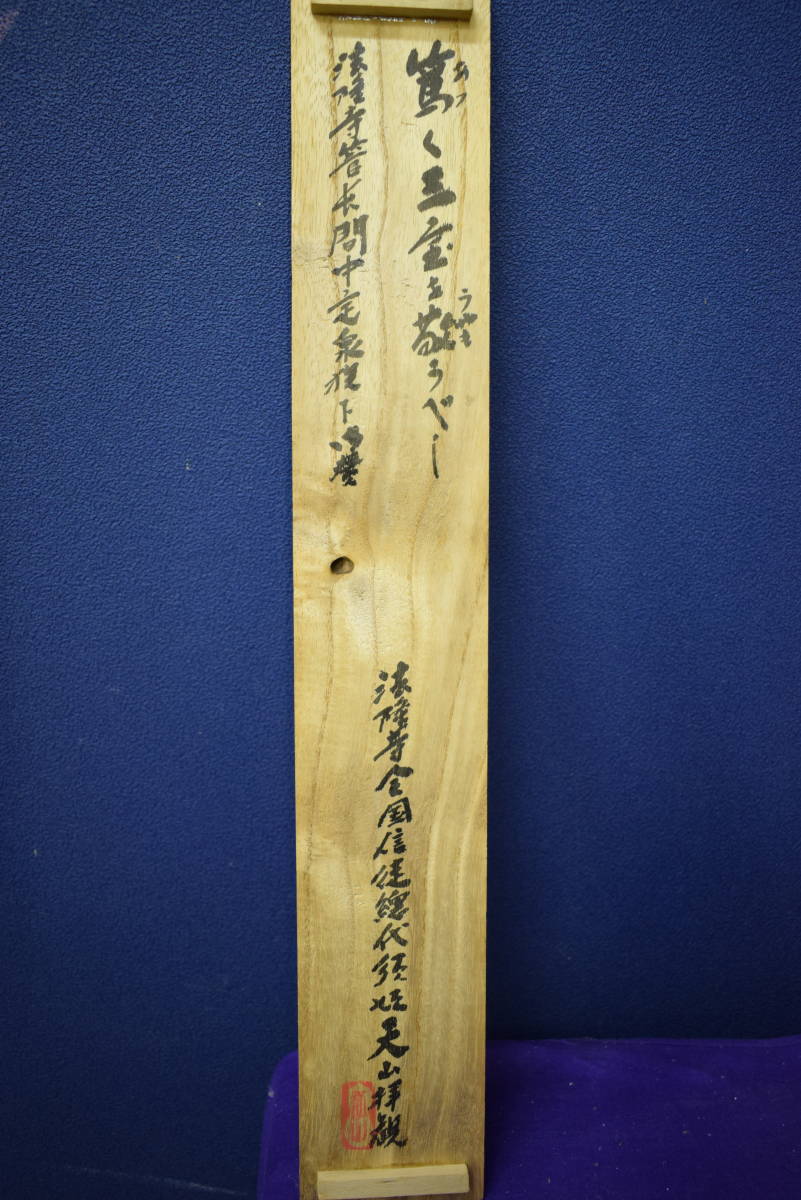 篤く三宝を敬うべし
あつ
うやま
法隆寺管長間中定泉猊下御讃
法隆寺全国信徒總代須
天山拝観